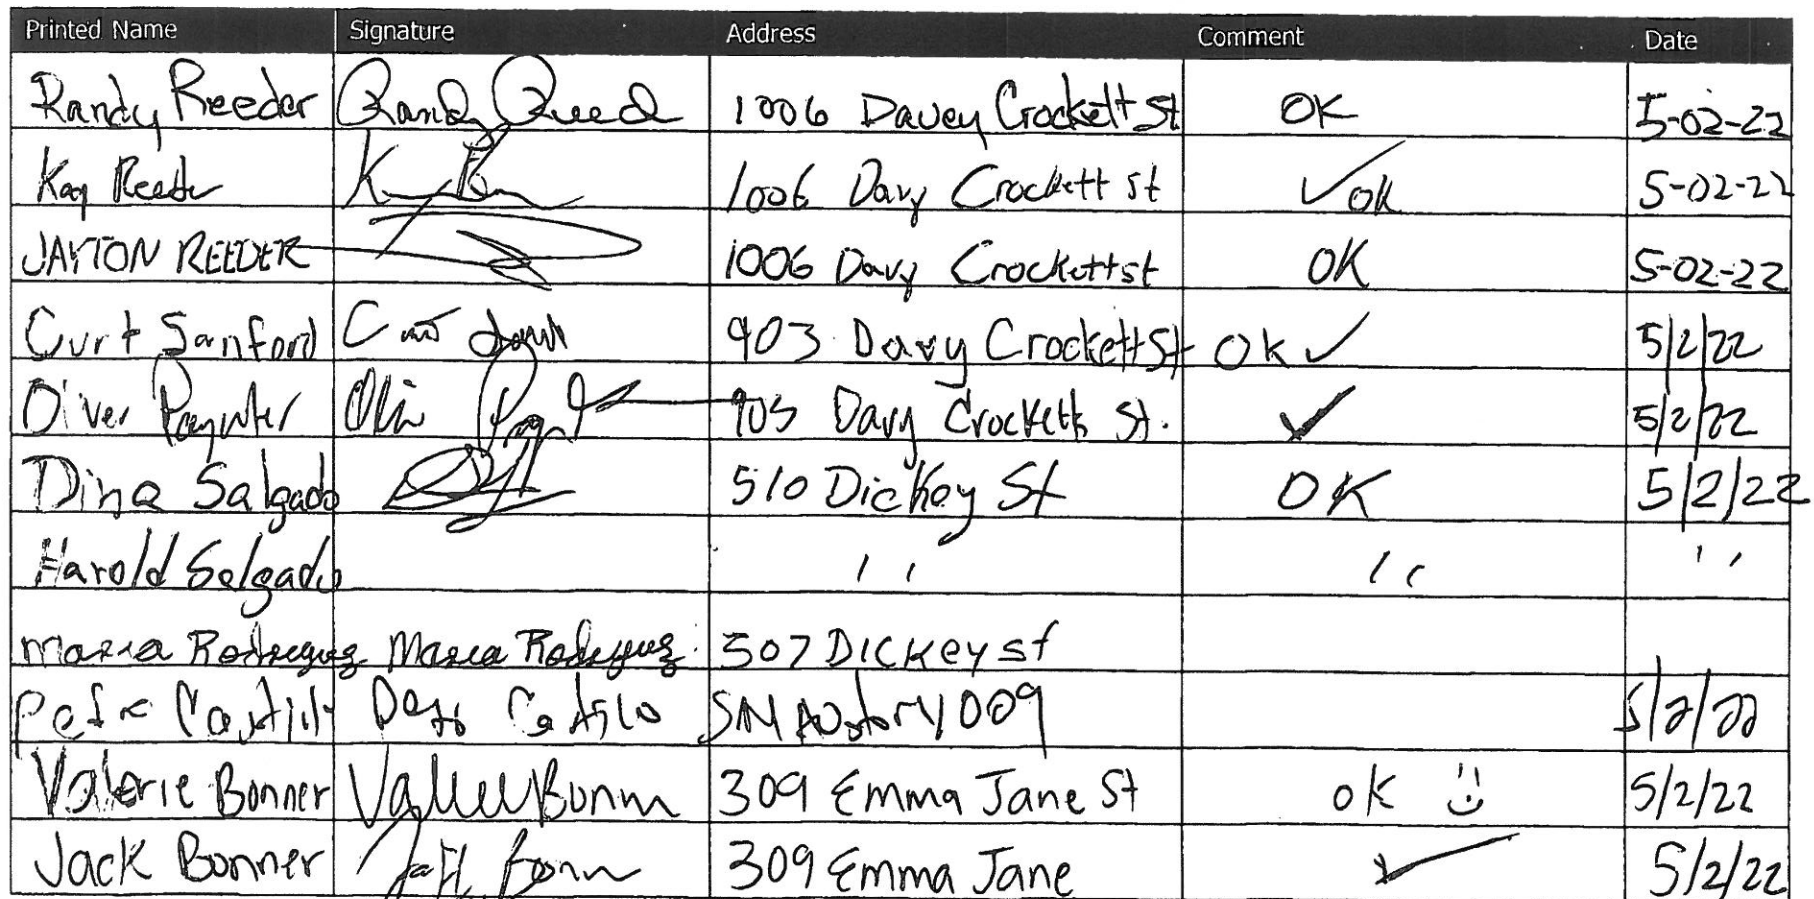 Printed Name Signature Address Comment Date
Randy Reeder Randy Reed 1006 Davey Crockett St OK 5-02-22
Kay Reeder 1006 Davy Crockett st ✓ OK 5-02-22
JAYTON REEDER 1006 Davy Crockett st OK 5-02-22
Curt Sanford 903 Davy Crockett St OK ✓ 5/2/22
Oliver Paynter 905 Davy Crockett St. ✓ 5/2/22
Dina Salgado 510 Dickey St OK 5/2/22
Harold Salgado '' '' ''
Maria Rodreguez Maria Rodreguez 507 DICKey st
1009 5/2/22
Valerie Bonner Valerie Bonner 309 Emma Jane St OK 5/2/22
Jack Bonner Bonn 309 Emma Jane ✓ 5/2/22